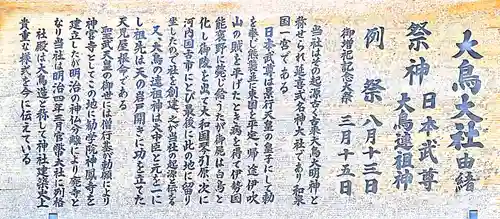 大鳥大社由緒
祭神 日本武尊
大鳥連祖神
例祭 八月十三日
御増祀記念大祭 三月十五日
当社はその起源古く古来大鳥大明神と
称せられ延喜式名神大社であり和泉
国一宮である
日本武尊は景行天皇の皇子にして勅
を奉じ熊襲並に東国を平定、帰途伊吹
山の賊を平げたとき病を得て伊勢国
能褒野に薨じ給うたが御屍は白鳥と
化し御陵を出て大和国琴引原、次に
河内国古市にとび最後に此の地に留り
坐したので社を創建、之が当社の起源である
又、大鳥の連祖神は大中臣と元を一に
し祖先は天の岩戸開きに功を立てた
天児屋根命である
聖武天皇の御代には僧行基が勅願により
神宮寺としてこの地に勧学院神鳳寺を
建立したが明治の神仏分離により廃寺と
なり当社は明治四年三月官幣大社に列格
社殿は大鳥造と称して神社建築史上
貴重な様式を今に伝えている